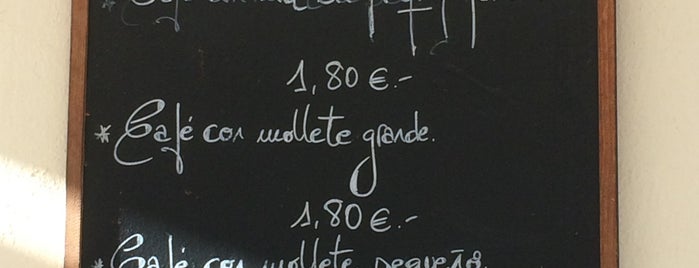 * Café con
1,80 €.-
* Café con mollete grande.
1,80 €.-
* Café con mollete pequeño